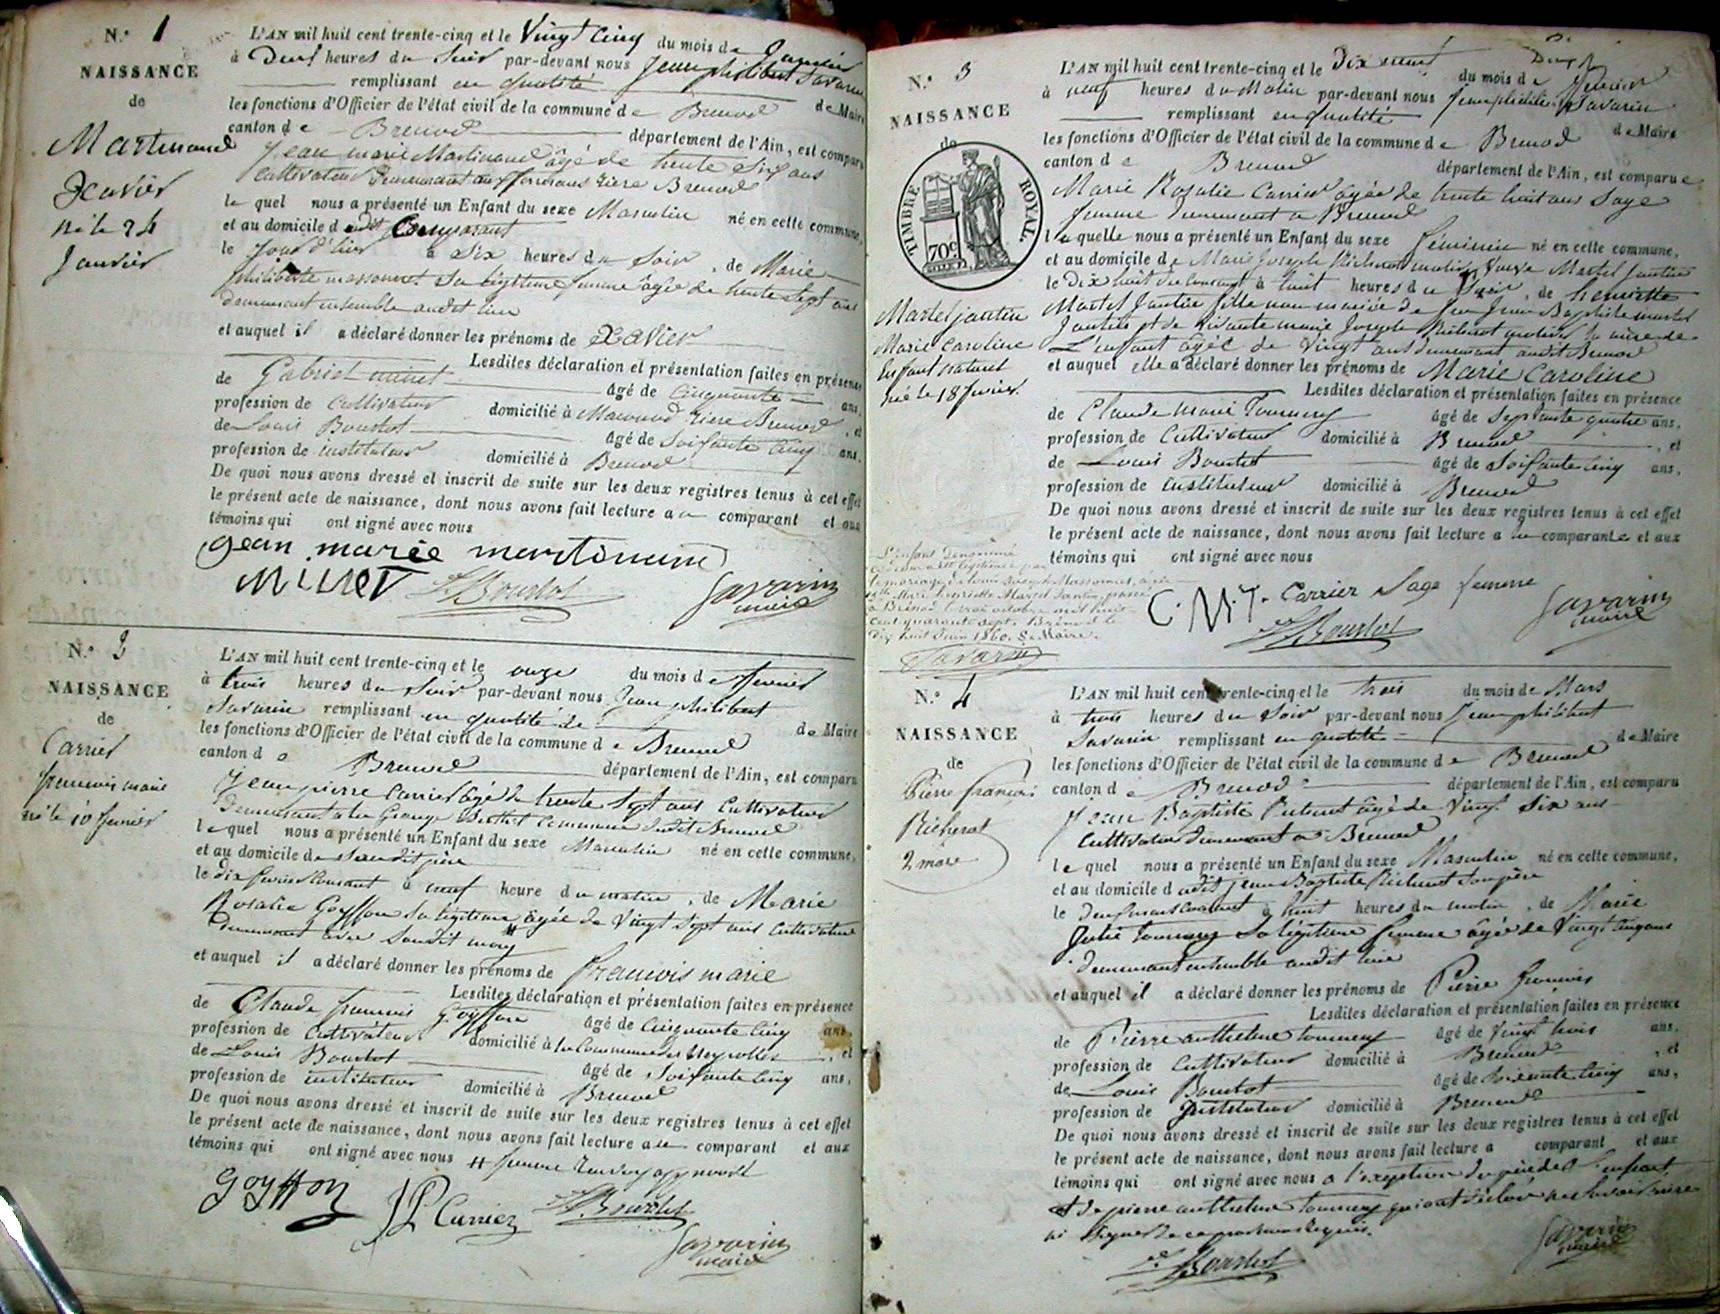 N.º 1
NAISSANCE
de
Martinand
Xavier
né le 24
Janvier
L'AN mil huit cent trente-cinq et le Vingt Cinq du mois de Janvier
à Deux heures du Soir par-devant nous Jean philibert Savarin
remplissant en qualité de Maire
les fonctions d'Officier de l'état civil de la commune de Brenod
canton de Brenod département de l'Ain, est comparu
Jean marie Martinand âgé de trente six ans
cultivateur demeurant aux rière Brenod
le quel nous a présenté un Enfant du sexe Masculin né en cette commune,
et au domicile dudit Comparant
le Jour d'hier à Six heures du Soir, de Marie
philiberte massonnet Sa légitime femme âgée de trente sept ans
demeurant ensemble audit lieu
et auquel il a déclaré donner les prénoms de Xavier
Lesdites déclaration et présentation faites en présence
de Gabriel minet âgé de Cinquante ans,
profession de Cultivateur domicilié à rière Brenod, et
de Louis Bourbot âgé de Soixante Cinq ans,
profession de instituteur domicilié à Brenod
De quoi nous avons dressé et inscrit de suite sur les deux registres tenus à cet effet
le présent acte de naissance, dont nous avons fait lecture au comparant et aux
témoins qui ont signé avec nous
Jean marie martinand
minet Bourbot Savarin
maire
N.º 2
NAISSANCE
de
Carrier
francois marie
né le 10 fevrier
L'AN mil huit cent trente-cinq et le onze du mois de fevrier
à trois heures du Soir par-devant nous Jean philibert
Savarin remplissant en qualité de de Maire
les fonctions d'Officier de l'état civil de la commune de Brenod
canton de Brenod département de l'Ain, est comparu
Jean pierre Carrier âgé de trente sept ans Cultivateur
demeurant à la Grange commune dudit Brenod
le quel nous a présenté un Enfant du sexe Masculin né en cette commune,
et au domicile de Sondit père
le dix fevrier Courant à neuf heure du matin, de Marie
Rosalie Goyffon Sa légitime âgée de Vingt Sept ans Cultivatrice
demeurant avec Sondit mary
et auquel il a déclaré donner les prénoms de francois marie
Lesdites déclaration et présentation faites en présence
de Claude francois Goyffon âgé de Cinquante Cinq ans,
profession de Cultivateur domicilié à la Commune des Neyrolles, et
de Louis Bourbot âgé de Soixante Cinq ans,
profession de instituteur domicilié à Brenod
De quoi nous avons dressé et inscrit de suite sur les deux registres tenus à cet effet
le présent acte de naissance, dont nous avons fait lecture au comparant et aux
témoins qui ont signé avec nous # femme Renvoy approuvé
Goyffon JP Carrier Bourbot
Savarin
maire
N.º 3
NAISSANCE
de
TIMBRE ROYAL.
70c
Martel jantin
Marie Caroline
Enfant naturel
née le 18 fevrier
L'AN mil huit cent trente-cinq et le Dix neuf du mois de fevrier
à neuf heures du Matin par-devant nous Jean philibert Savarin
remplissant en qualité de Maire
les fonctions d'Officier de l'état civil de la commune de Brenod
canton de Brenod département de l'Ain, est comparue
Marie Rosalie Carrier âgée de trente huit ans Sage
femme demeurant à Brenod
laquelle nous a présenté un Enfant du sexe féminin né en cette commune,
et au domicile de Marie Joseph Richerot Veuve Martel Jantin
le Dix huit du Courant à huit heures du Soir, de henriette
Martel Jantin fille non mariée de feu Jean Baptiste martel
Jantin et de Vivante marie Joseph Richerot la mère de
L'enfant âgée de Vingt ans demeurant audit Brenod
et auquel elle a déclaré donner les prénoms de Marie Caroline
Lesdites déclaration et présentation faites en présence
de Claude Marie Tonnery âgé de Septante quatre ans,
profession de Cultivateur domicilié à Brenod, et
de Louis Bourbot âgé de Soixante Cinq ans,
profession de instituteur domicilié à Brenod
De quoi nous avons dressé et inscrit de suite sur les deux registres tenus à cet effet
le présent acte de naissance, dont nous avons fait lecture à la comparante et aux
témoins qui ont signé avec nous
L'enfant dénommé
a été légitimé par
le mariage de Louis Joseph Massonnet, avec
Marie henriette Martel Jantin, passé
à Brénod le trois octobre mil huit
cent quarante sept. Brénod le
dix huit Juin 1860. Le Maire.
Savarin
C. M. T. Carrier Sage femme
Bourbot Savarin
maire
N.º 4
NAISSANCE
de
Pierre francois
Richerot
2 mars
L'AN mil huit cent trente-cinq et le trois du mois de Mars
à trois heures du Soir par-devant nous Jean philibert
Savarin remplissant en qualité de Maire
les fonctions d'Officier de l'état civil de la commune de Brenod
canton de Brenod département de l'Ain, est comparu
Jean Baptiste Richerot âgé de Vingt Six ans
Cultivateur demeurant à Brenod
le quel nous a présenté un Enfant du sexe Masculin né en cette commune,
et au domicile dudit jean Baptiste Richerot Son père
le Deux mars Courant à huit heures du matin, de Marie
Julie Tonnery Sa légitime femme âgée de Vingt Cinq ans
demeurant ensemble audit lieu
et auquel il a déclaré donner les prénoms de Pierre francois
Lesdites déclaration et présentation faites en présence
de Pierre anthelme tonnery âgé de Vingt trois ans,
profession de Cultivateur domicilié à Brenod, et
de Louis Bourbot âgé de Soixante Cinq ans,
profession de instituteur domicilié à Brenod
De quoi nous avons dressé et inscrit de suite sur les deux registres tenus à cet effet
le présent acte de naissance, dont nous avons fait lecture a comparant et aux
témoins qui ont signé avec nous à l'exception du père de l'enfant
et de pierre anthelme Tonnery qui ont déclaré ne Savoir écrire
ni Signer de ce requis.
Bourbot Savarin
maire